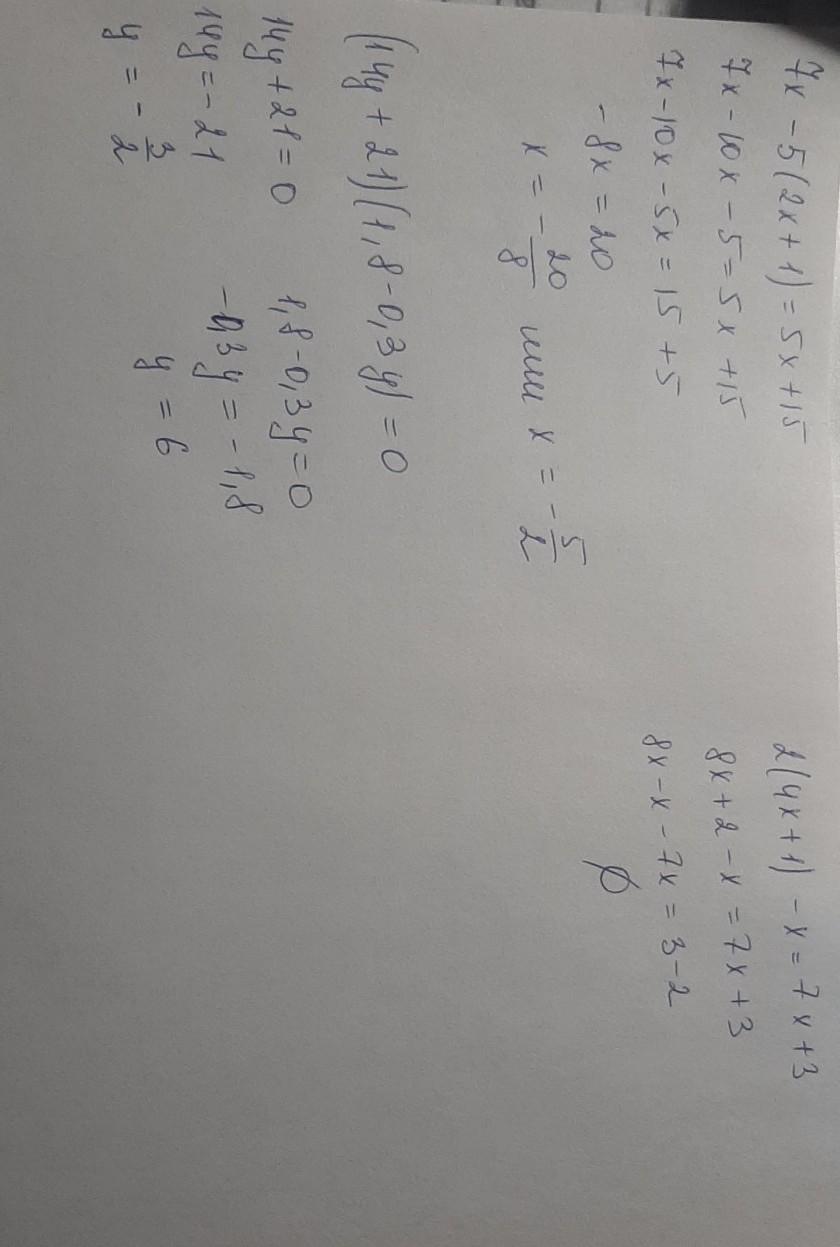 7x - 5(2x + 1) = 5x + 15
7x - 10x - 5 = 5x + 15
7x - 10x - 5x = 15 + 5
- 8x = 20
x = - 20/8 или x = - 5/2
2(4x + 1) - x = 7x + 3
8x + 2 - x = 7x + 3
8x - x - 7x = 3 - 2
∅
(14y + 21)(1,8 - 0,3y) = 0
14y + 21 = 0
14y = - 21
y = - 3/2
1,8 - 0,3y = 0
- 0,3y = - 1,8
y = 6